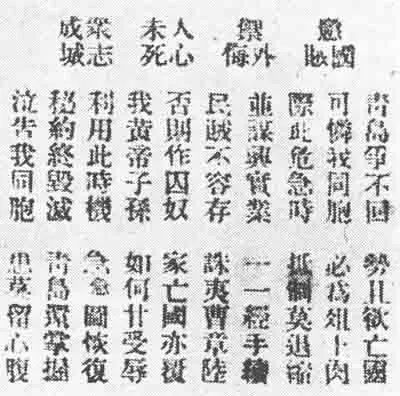 懲國賊
禦外侮
人心未死
衆志成城
青島爭不回
可憐我同胞
際此危急時
並謀興實業
民賊不容存
否則作囚奴
我黃帝子孫
利用此時機
秘約終毀滅
泣告我同胞
勢且欲亡國
必爲俎上肉
抵制莫退縮
一一經手續
誅夷曹章陸
家亡國亦覆
如何甘受辱
急念圖恢復
青島還掌握
患莫留心腹